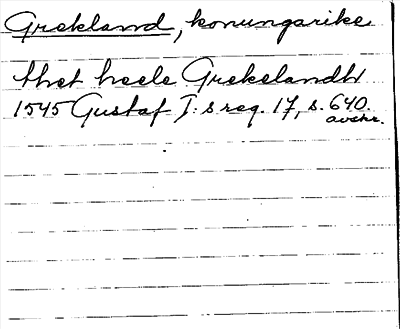 Grekland, konungarike
thet heele Grekelandh
1545 Gustaf I:s reg. 17, s. 640.
avskr.